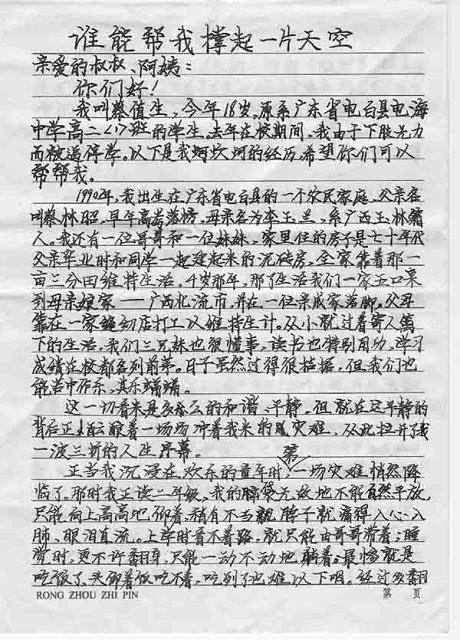 谁能帮我撑起一片天空
亲爱的叔叔、阿姨：
你们好！
我叫蔡值生，今年18岁，原系广东省电白县电海
中学高二〈1〉班的学生。去年在校期间，我由于下肢无力
而被迫停学。以下是我坎坷的经历希望你们可以
帮帮我。
1990年，我出生在广东省电白县的一个农民家庭，父亲名
叫蔡林昭，早年高考落榜，母亲名为李玉兰，系广西玉林籍
人。我还有一位哥哥和一位妹妹，家里住的房子是七十年代
父亲毕业时和同学一起建起来的泥砖房，全家靠着那一
亩三分田维持生活。4岁那年，那了生活我们一家五口来
到母亲娘家——广西北流市，并在一位亲戚家落脚，父母
靠在一家打店打工以维持生计。从小就过着寄人篱
下的生活，我们三兄妹也很懂事，读书也特别用功，学习
成绩在校都名列前茅。日子虽然过得很拮据，但我们也
能苦中作乐，其乐融融。
这一切看来是多么的和谐、平静，但就在这平静的
背后正酝酿着一场场冲着我来的灾难，从此拉开了我
一波三折的人生序幕。
正当我沉浸在欢乐的童年时，一场灾难悄然降
临了。那时我正读三年级，我的脑袋无故地不能自然平放，
只能向上高高地仰着，稍有不当，脖子就痛得入心入
肺，眼泪直流。上学时看不着路，就只能由哥哥带着；睡
觉时，更不许翻身，只能一动不动地躺着；最惨就是
吃饭了，头仰着饭吃不着，吃到了也难以下咽。经过多翻
RONG ZHOU ZHI PIN 第 页